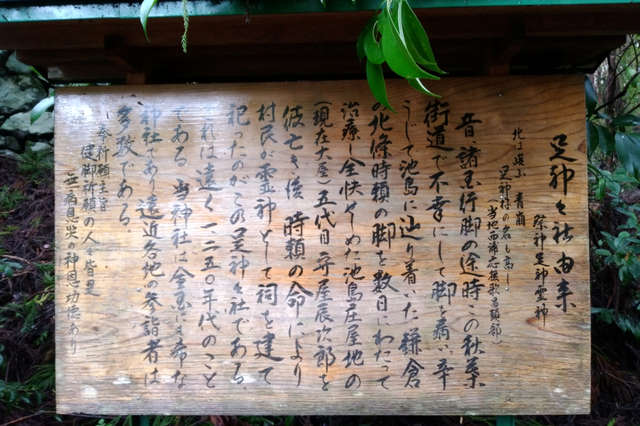 足神々社由来
祭神足神霊神
北に遥ふ 青崩
足神様の名も高し
(当地西浦 歌首頭一部)
昔諸国行脚の途時この秋葉
街道で不幸にして脚を病い辛
うじて池島に辿り着いた鎌倉
の北條時頼の脚を数日にわたって
治療し全快せしめた池島庄屋地の
(現在大屋)五代目守屋辰次郎を
彼亡き後時頼の命により
村民が霊神として祠を建て
祀ったのがこの足神々社である。
それは遠く一二五〇年代のこと
である。当神社は全国でも希な
神社であり遠近各地の参詣者は
多数である。
参祈願主旨
健脚祈願の人々皆是
無病息災の神恩功徳あり